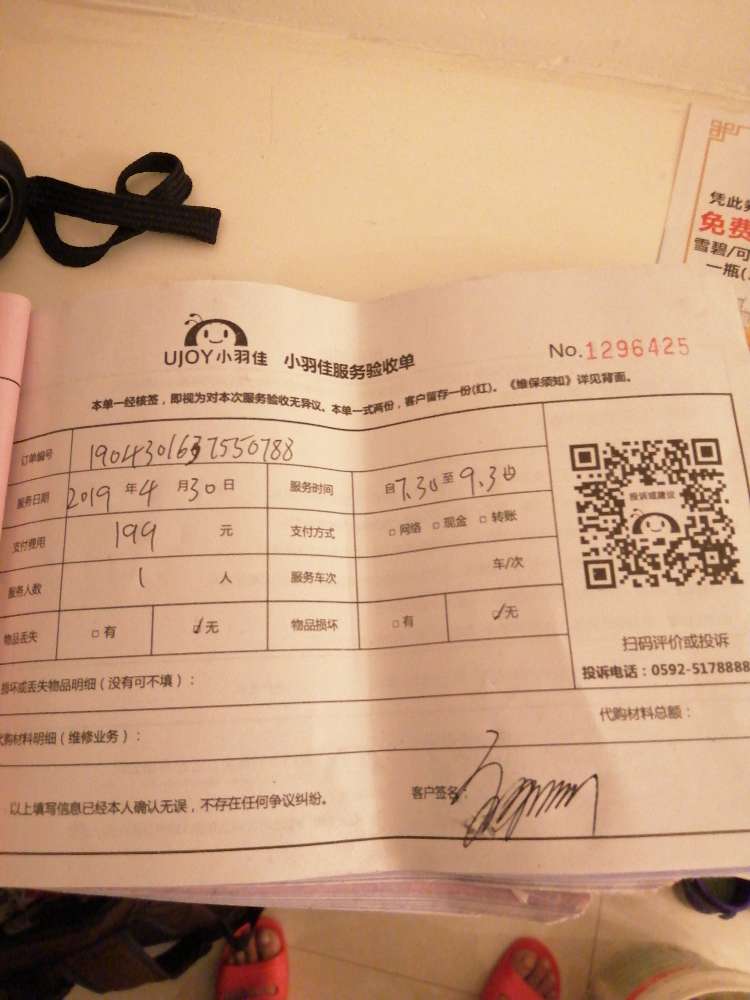 凭此
免费
雪碧/可
一瓶(
UJOY小羽佳 小羽佳服务验收单
No.1296425
本单一经核签，即视为对本次服务验收无异议。本单一式两份，客户留存一份(红)。《维保须知》详见背面。
订单编号 1904301637550788
服务日期 2019年4月30日 服务时间 自7.30至9.30
支付费用 199 元 支付方式 □网络 □现金 □转账
服务人数 1 人 服务车次 车/次
物品丢失 □有 ☑无 物品损坏 □有 ☑无
投诉或建议
扫码评价或投诉
投诉电话：0592-5178888
损坏或丢失物品明细（没有可不填）：
代购材料明细（维修业务）： 代购材料总额：
以上填写信息已经本人确认无误，不存在任何争议纠纷。 客户签名：